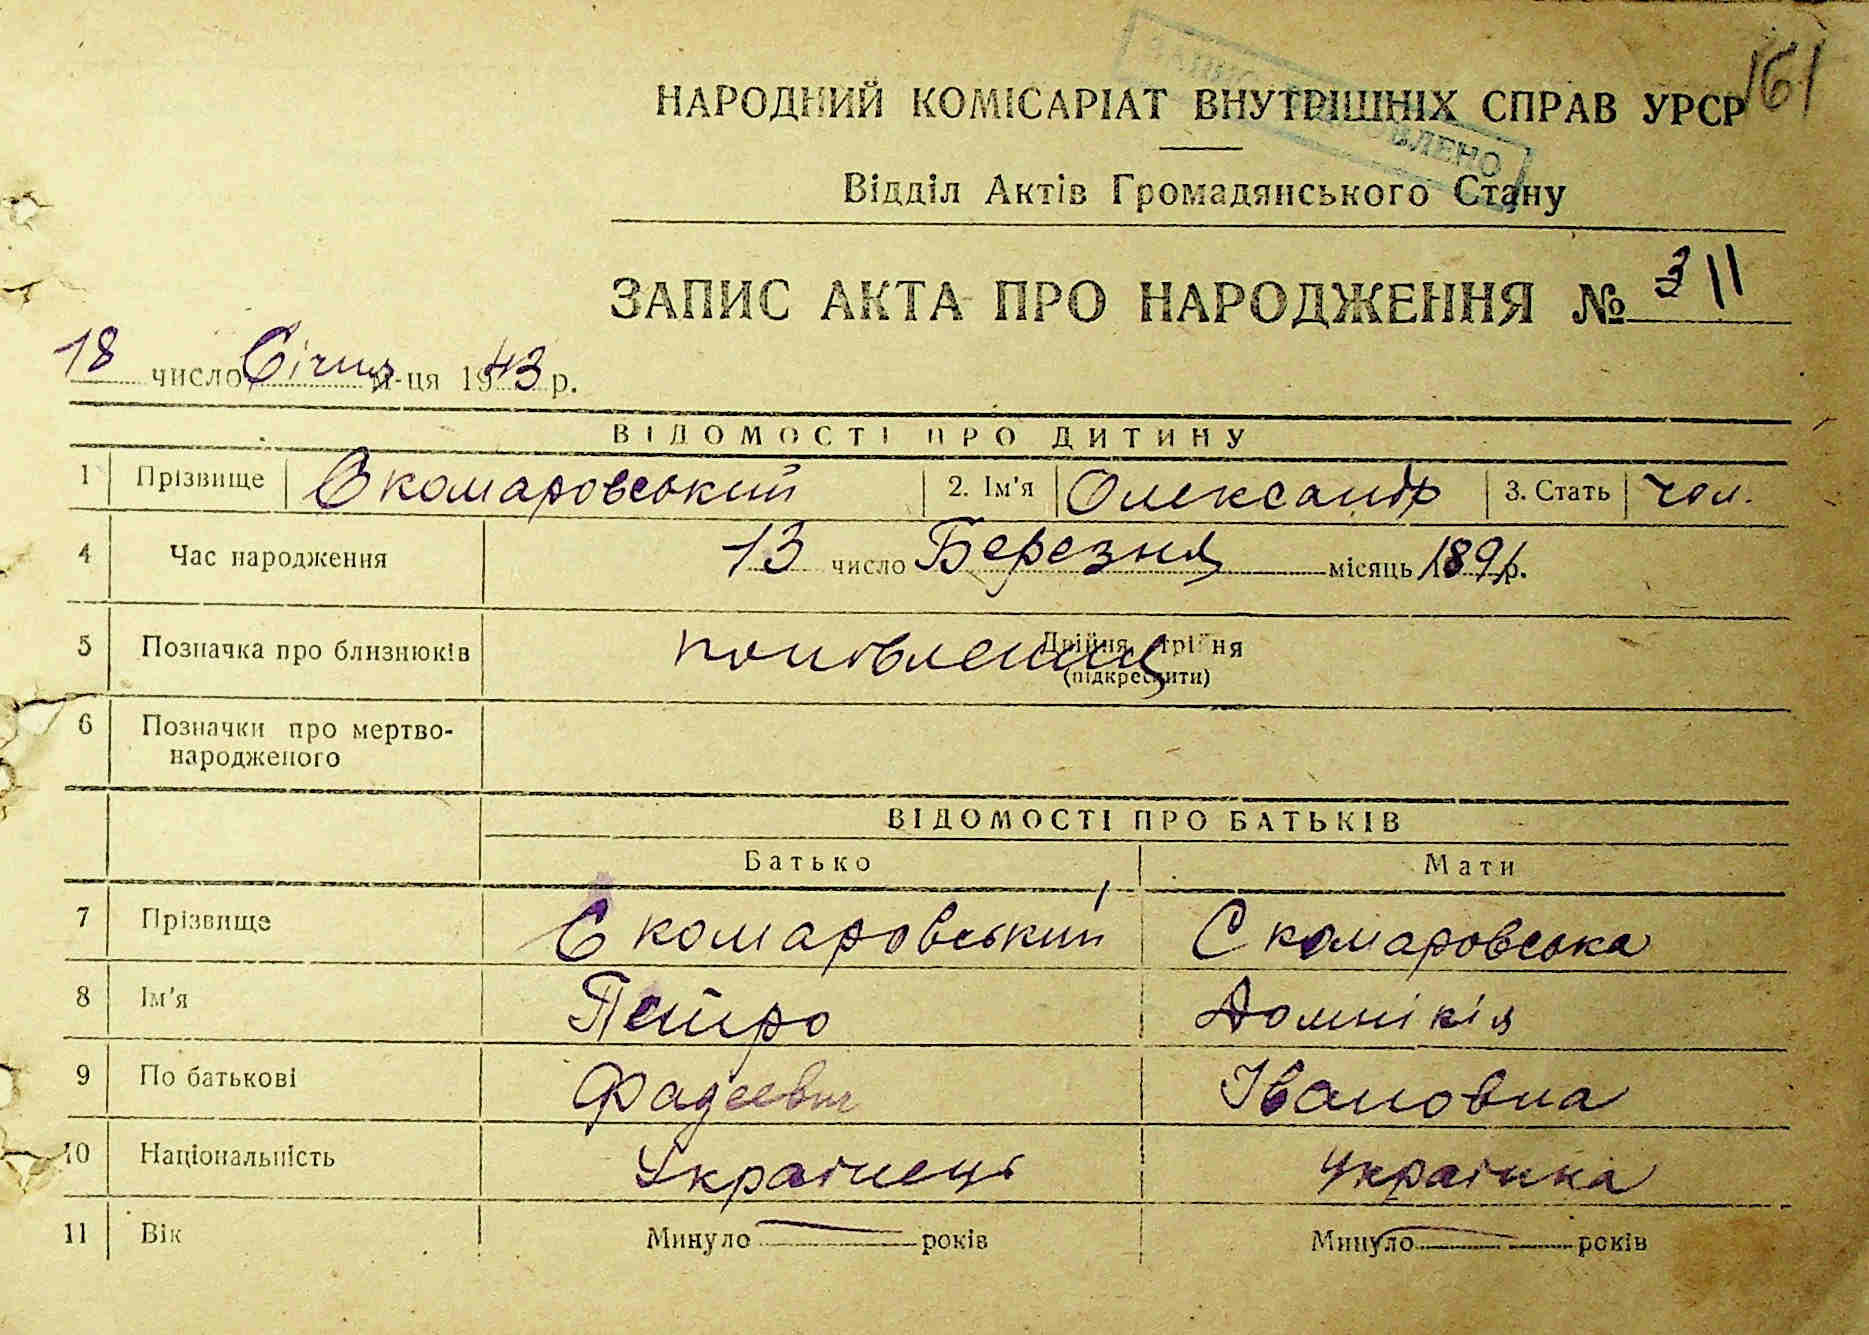 161
НАРОДНИЙ КОМІСАРІАТ ВНУТРІШНІХ СПРАВ УРСР
Відділ Актів Громадянського Стану
ЗАПИС АКТА ПРО НАРОДЖЕННЯ № 311
18 число Січня м-ця 1943 р.
ВІДОМОСТІ ПРО ДИТИНУ
1 Прізвище Скомаровський 2. Ім'я Олександр 3. Стать чол.
4 Час народження 13 число Березня місяць 1891 р.
5 Позначка про близнюків поновлення Двійня, трійня
(підкреслити)
6 Позначки про мертво-
народженого
ВІДОМОСТІ ПРО БАТЬКІВ
Батько Мати
7 Прізвище Скомаровський Скомаровська
8 Ім'я Петро Домнікія
9 По батькові Фадеевич Івановна
10 Національність Українець Українка
11 Вік Минуло років Минуло років